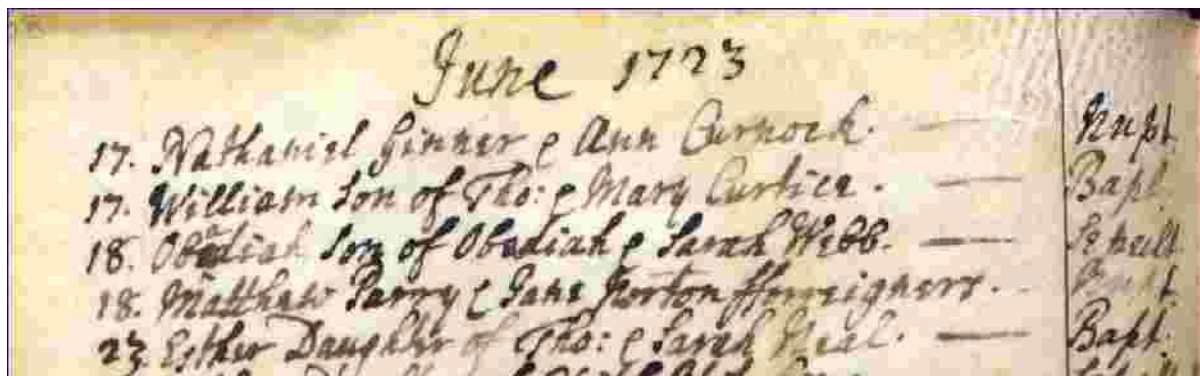 June 1723
17. Nathaniel Ginner & Ann Curnock. — Nupt.
17. William Son of Tho: & Mary Curtice. — Bapt.
18. Obadiah Son of Obadiah & Sarah Webb. — Sepult.
18. Matthew Parry & Jane Norton fforreigners. Nupt.
23. Esther Daughter of Tho: & Sarah Neal. — Bapt.